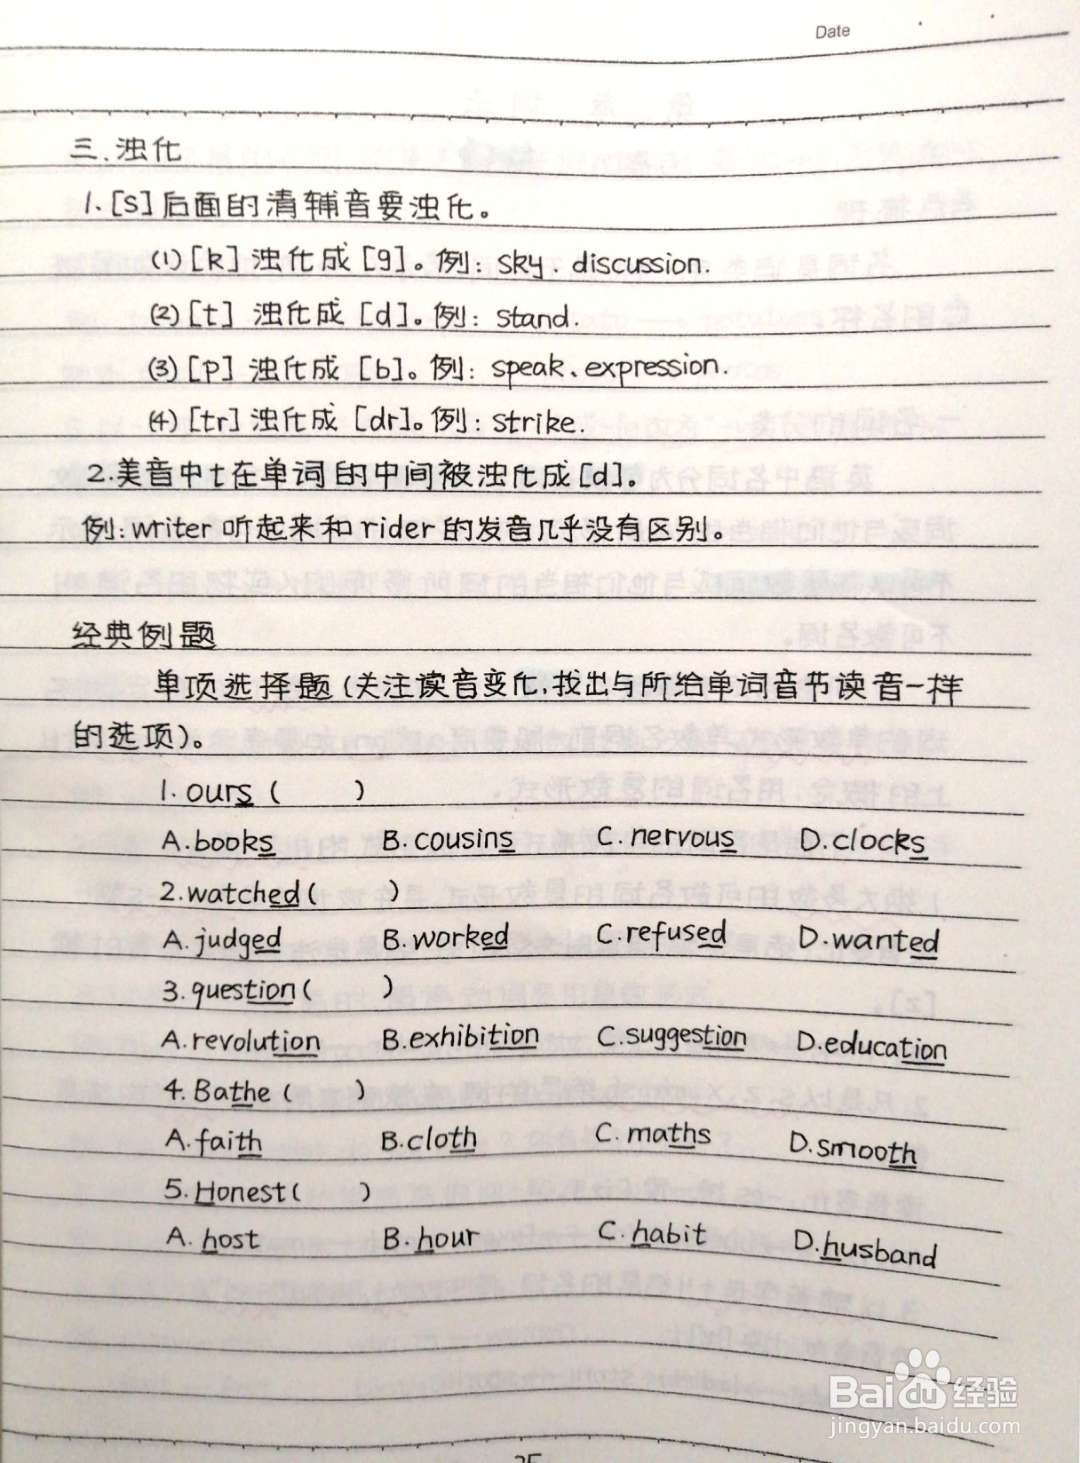 Date
三.浊化
1.[s]后面的清辅音要浊化。
(1)[k]浊化成[g]。例:sky.discussion.
(2)[t] 浊化成[d]。例:stand.
(3)[p]浊化成[b]。例:speak、expression.
(4)[tr]浊化成[dr]。例:strike.
2.美音中t在单词的中间被浊化成[d]。
例:writer听起来和rider的发音几乎没有区别。
经典例题
单项选择题(关注读音变化,找出与所给单词音节读音一样
的选项)。
1.ours( )
A.books B.cousins C.nervous D.clocks
2.watched( )
A.judged B.worked C.refused D.wanted
3.question( )
A.revolution B.exhibition C.suggestion D.education
4.Bathe( )
A.faith B.cloth C.maths D.smooth
5.Honest( )
A.host B.hour C.habit D.husband
Baidu经验
jingyan.baidu.com